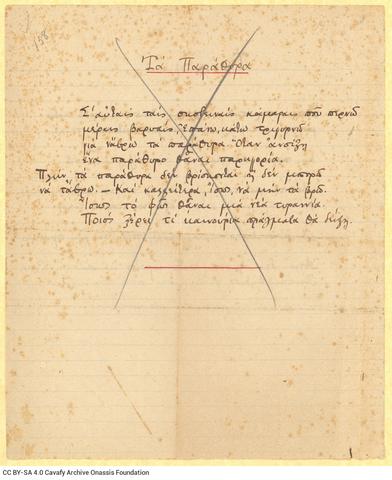 158
Τὰ Παράθυρα
Σ' αὐταὶς ταὶς σκοτειναὶς κάμαραις ποῦ περνῶ
μέραις βαρυαίς, ἐπάνω κάτω τριγυρνῶ
γιὰ νἄβρω τὰ παράθυρα. Ὅταν ἀνοίξῃ
ἕνα παράθυρο θἆναι παρηγορία.
Πλὴν τὰ παράθυρα δὲν βρίσκονται ἢ δὲν μπορῶ
νὰ τἄβρω. – Καὶ καλλίτερα ἴσως νὰ μὴν τὰ βρῶ.
Ἴσως τὸ φῶς θἆναι μιὰ νέα τυραννία.
Ποιὸς ξέρει τί καινούρια πράγματα θὰ δείξῃ.
CC BY-SA 4.0 Cavafy Archive Onassis Foundation